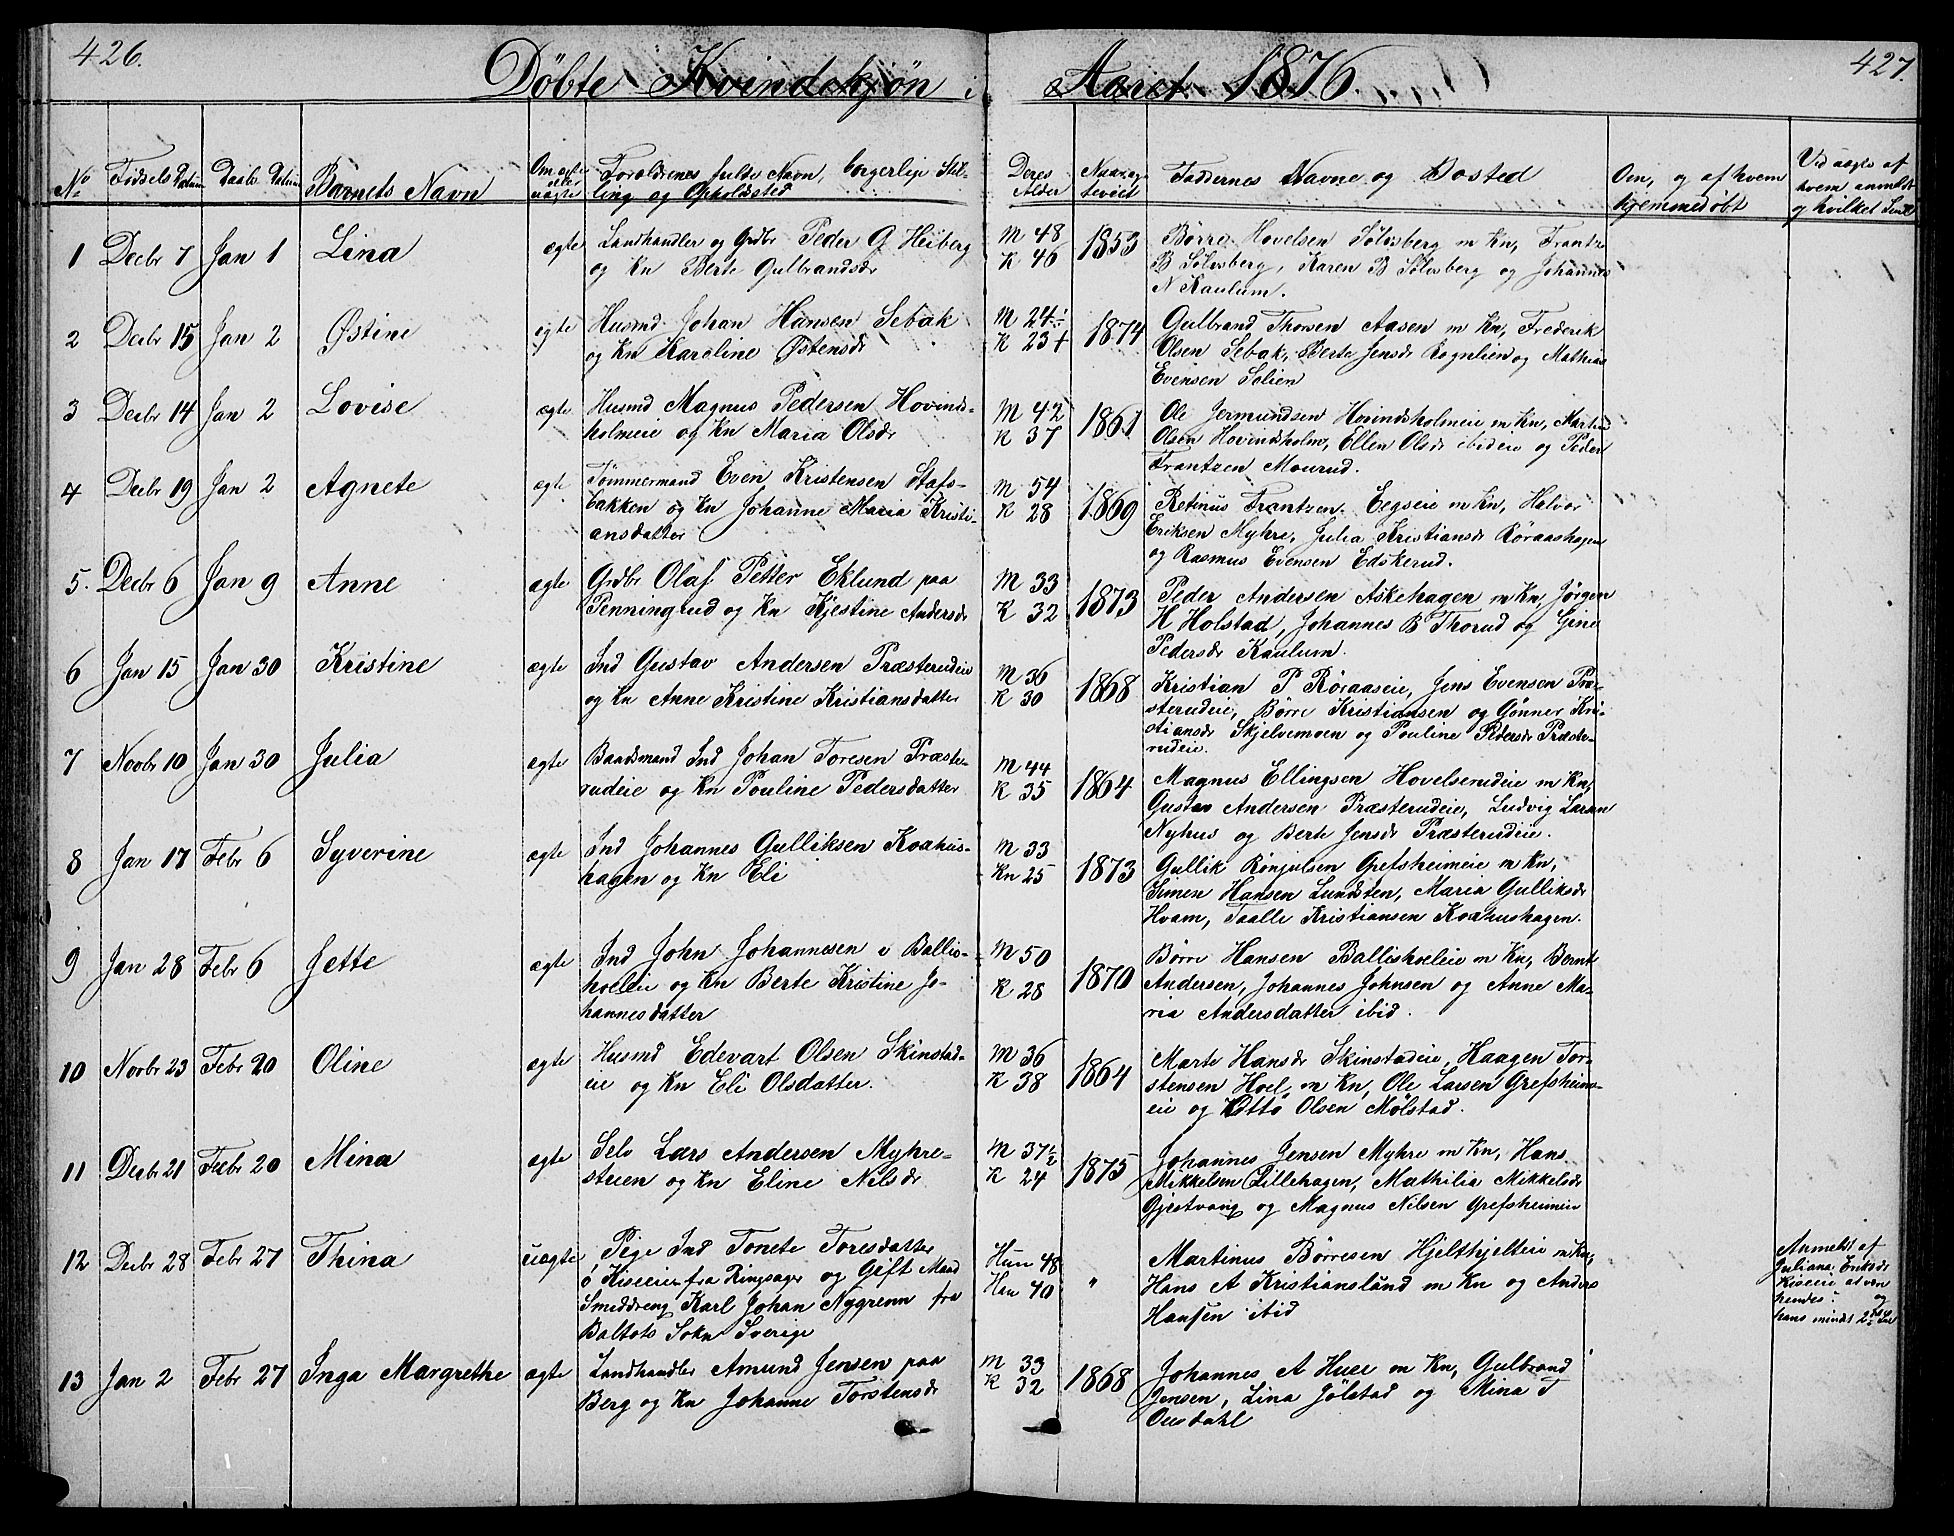 426.
427.
Döbte Kvindekjøn i Aaret 1876.
No
Fødsels Datum
Daabs Datum
Barnets Navn
Om ægte eller uægte
Forældrenes fulde Navn, borgerlige Stil-
ling og Opholdsted
Deres Alder
Naar og
Faddernes Navne og Bosted
Om, og af hvem
hjemmedøbt
Vid uægte af
hvem anmeldt
og hvilket
1 Decbr 7 Jan 1 Lina ægte Landhandler og Grdbr Peder G Heiberg
og Kn Berte Gulbrandsdr
M 48
K 46
1853
Børre Hovelsen Sølvsberg m Kn, Frantz
B Sølvsberg, Karen B Sølvsberg og Johannes
N Kaulum.
2 Decbr 15 Jan 2 Østine ægte Husmd Johan Hansen Sebak
og Kn Karoline Østensdr
M 24
K 23
1874
Gulbrand Thorsen Aasen m Kn, Frederik
Olsen Sebak, Berte Jensdr Rognlien og Mathias
Evensen Solien
3 Decbr 14 Jan 2 Lovise ægte Husmd Magnus Pedersen Hovinds-
holmeie og Kn Maria Olsdr
M 42
K 37
1861
Ole Jermundsen Hovindsholmeie m Kn,
Olsen Hovindsholm, Ellen Olsdr ibid eie og Peder
Frantzen Mourud.
4 Decbr 19 Jan 2 Agnete ægte Tømmermand Even Kristensen Stafs-
bakken og Kn Johanne Maria Kristi-
ansdatter
M 54
K 28
1869
Retinus Frantzen Eegseie m Kn, Halvor
Eriksen Myhre, Julia Kristiansdr Røraashagen
og Rasmus Evensen Edskerud.
5. Decbr 6 Jan 9 Anne ægte Grdbr Olaf Petter Eklund paa
Penningrud og Kn Kjestine Andersdr
M 33
K 32
1873
Peder Andersen Askehagen m Kn, Jörgen
H Holstad, Johannes B Thorud og Gine
Pedersdr Kaulum.
6 Jan 15 Jan 30 Kristine ægte Ind Gustav Andersen Præsterudeie
og Kn Anne Kristine Kristiansdatter
M 36
K 30
1868
Kristian P Røraaseie, Jens Evensen Præ-
sterudeie, Børre Kristiansen og Gønner Kri-
stiansdr Skjelvemoen og Pouline Pedersdr Præste-
rudeie.
7 Novbr 10 Jan 30 Julia ægte Baadsmand Ind Johan Toresen Præste-
rudeie og Kn Pouline Pedersdatter
M 44
K 35
1864
Magnus Ellingsen Hovelsrudeie m Kn,
Gustav Andersen Præsterudeie, Ludvig Larsen
Nyhus og Berte Jensdr Præsterudeie.
8 Jan 17 Febr 6 Syverine ægte Ind Johannes Gulliksen Koahus-
hagen og Kn Eli
M 33
Kn 25
1873
Gullik Ringulsen Grefsheimeie m Kn,
Simen Hansen Lundsten, Maria Gulliksdr
Hvam, Taalle Kristiansen Koahushagen.
9 Jan 28 Febr 6 Jette ægte Ind John Johannesen i Ballis-
hoeleie og Kn Berte Kristine Jo-
hannesdatter
M 50
K 28
1870
Børre Hansen Ballishoeleie m Kn, Bernt
Andersen, Johannes Johnsen og Anne Ma-
ria Andersdatter ibid.
10 Novbr 23 Febr 20 Oline ægte Husmd Edevart Olsen Skinstad-
eie og Kn Eli Olsdatter.
M 36
K 38
1864
Marte Hansdr Skinstadeie, Haagen Tor-
stensen Hoel, m Kn, Ole Larsen Grefsheim-
eie og Otto Olsen Mølstad.
11 Decbr 21 Febr 20 Mina ægte Selv Lars Andersen Myhre-
stuen og Kn Eline Nilsdr
M 37½
K 24
1875
Johannes Jensen Myhre m Kn, Hans
Mikkelsen Lillehagen, Mathilia Mikkelsdr
Gjestvang og Magnus Nilsen Grefsheimeie
12 Decbr 28 Febr 27 Thina uægte Pige Ind Tonete Toresdatter
i Kiseeie fra Ringsager og Gift Mand
Smeddreng Karl Johan Nygrenn fra
Boltots Sokn Sverige
Hun 48
Han 40
"
Martinus Børresen Hjelthjelteie m Kn,
Hans A Kristianslund m Kn og Anders
Hansen ibid
Anmeldt af
Juliana Eriksdr
Kiseeie at være
hendes og
hans mindst 2
13 Jan 2 Febr 27 Inga Margrethe ægte Landhandler Amund Jensen paa
Berg og Kn Johanne Torstensdr
M 33
K 32
1868
Johannes A Huse m Kn, Gulbrand
Jensen, Lina Jölstad og Mina T
Ousdahl